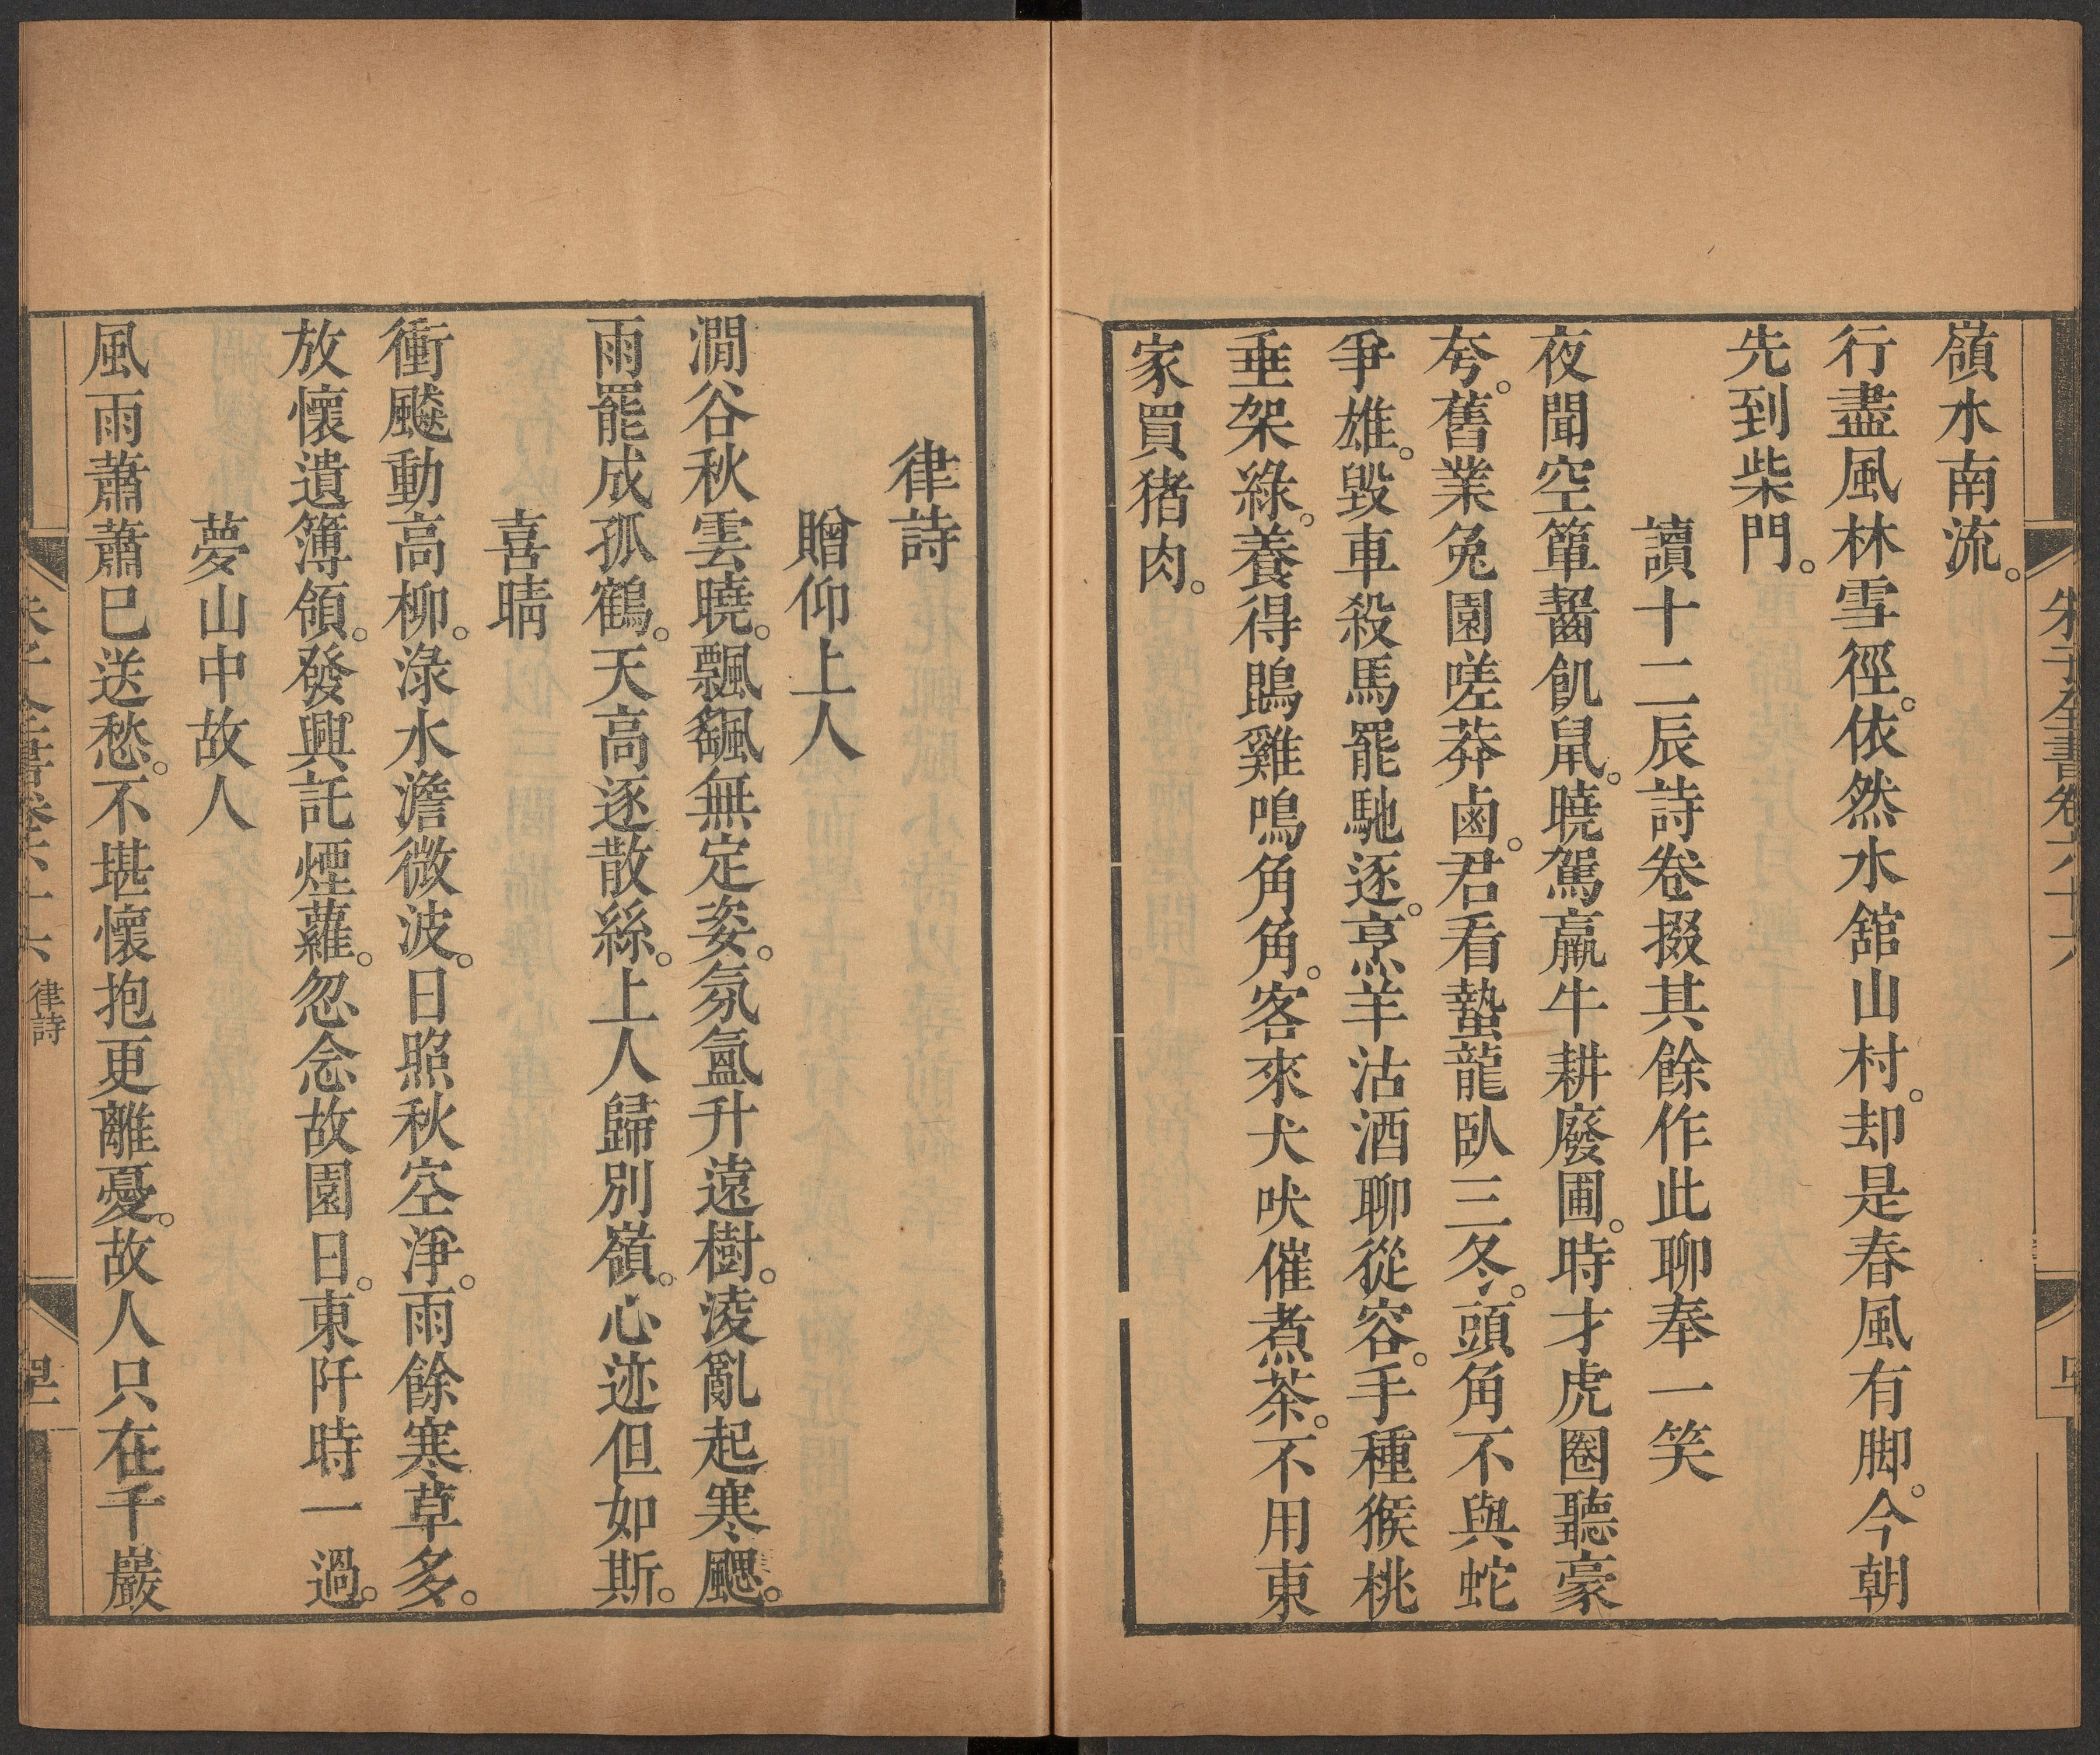 嶺水南流。
行盡風林雪徑。依然水舘山村。却是春風有脚。今朝
先到柴門。
讀十二辰詩卷掇其餘作此聊奉一笑
夜聞空簞齧飢鼠。曉駕羸牛耕廢圃。時才虎圈聽豪
夸。舊業兔園嗟莽鹵。君看蟄龍臥三冬。頭角不與蛇
爭雄。毁車殺馬罷馳逐。烹羊沽酒聊從容。手種猴桃
垂架綠。養得鵾雞鳴角角。客來犬吠催煮茶。不用東
家買猪肉。
律詩
贈仰上人
澗谷秋雲曉。飄颻無定姿。氛氳升遠樹。淩亂起寒颸。
雨罷成孤鶴。天高逐散絲。上人歸別嶺。心迹但如斯。
喜晴
衝飈動高柳。淥水澹微波。日照秋空淨。雨餘寒草多。
放懷遺簿領。發興託煙蘿。忽念故園日。東阡時一過。
夢山中故人
風雨蕭蕭已送愁。不堪懷抱更離憂。故人只在千巖
朱子全書卷六十六 律詩